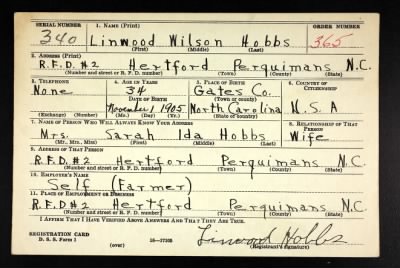 SERIAL NUMBER 1. NAME (Print) ORDER NUMBER
340 Linwood Wilson Hobbs 365
(First) (Middle) (Last)
2. ADDRESS (Print)
R.F.D. #2 Hertford Perquimans N.C.
(Number and street or R. F. D. number) (Town) (County) (State)
3. TELEPHONE 4. AGE IN YEARS 5. PLACE OF BIRTH 6. COUNTRY OF CITIZENSHIP
None 34 Gates Co.
DATE OF BIRTH (Town or county)
November 1, 1905 North Carolina U.S.A
(Exchange) (Number) (Mo.) (Day) (Yr.) (State or country)
7. NAME OF PERSON WHO WILL ALWAYS KNOW YOUR ADDRESS 8. RELATIONSHIP OF THAT PERSON
Mrs. Sarah Ida Hobbs Wife
(Mr., Mrs., Miss) (First) (Middle) (Last)
9. ADDRESS OF THAT PERSON
R.F.D. #2 Hertford Perquimans N.C.
(Number and street or R. F. D. number) (Town) (County) (State)
10. EMPLOYER'S NAME
Self (Farmer)
11. PLACE OF EMPLOYMENT OR BUSINESS
R.F.D #2 Hertford Perquimans N.C.
(Number and street or R. F. D. number) (Town) (County) (State)
I AFFIRM THAT I HAVE VERIFIED ABOVE ANSWERS AND THAT THEY ARE TRUE.
REGISTRATION CARD
D. S. S. Form 1 (over) 16—17105 Linwood Hobbs
(Registrant's signature)